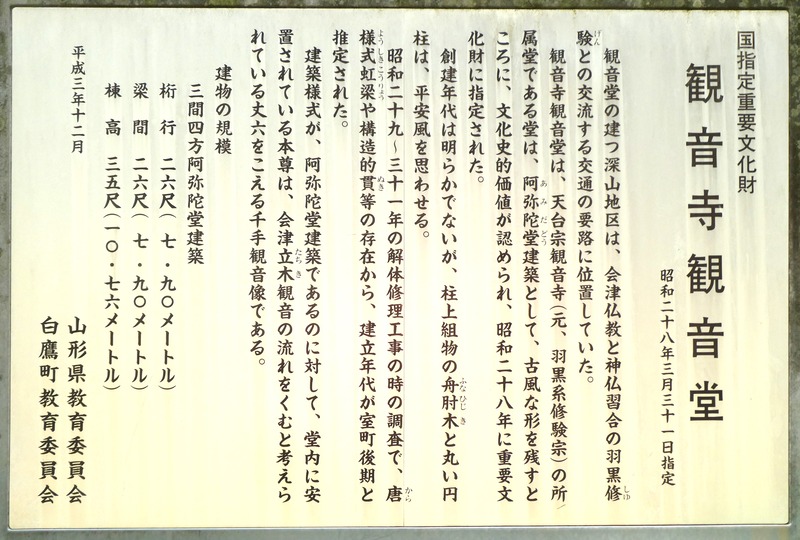 国指定重要文化財
観音寺観音堂
昭和二十八年三月三十一日指定
観音堂の建つ深山地区は、会津仏教と神仏習合の羽黒修
験との交流する交通の要路に位置していた。
観音寺観音堂は、天台宗観音寺(元、羽黒系修験宗)の所
属堂である堂は、阿弥陀堂建築として、古風な形を残すと
ころに、文化史的価値が認められ、昭和二十八年に重要文
化財に指定された。
創建年代は明らかでないが、柱上組物の舟肘木と丸い円
柱は、平安風を思わせる。
昭和二十九~三十一年の解体修理工事の時の調査で、唐
様式虹梁や構造的貫等の存在から、建立年代が室町後期と
推定された。
建築様式が、阿弥陀堂建築であるのに対して、堂内に安
置されている本尊は、会津立木観音の流れをくむと考えら
れている丈六をこえる千手観音像である。
建物の規模
三間四方阿弥陀堂建築
桁行 二六尺(七・九〇メートル)
梁間 二六尺(七・九〇メートル)
棟高 三五尺(一〇・七六メートル)
平成三年十二月
山形県教育委員会
白鷹町教育委員会